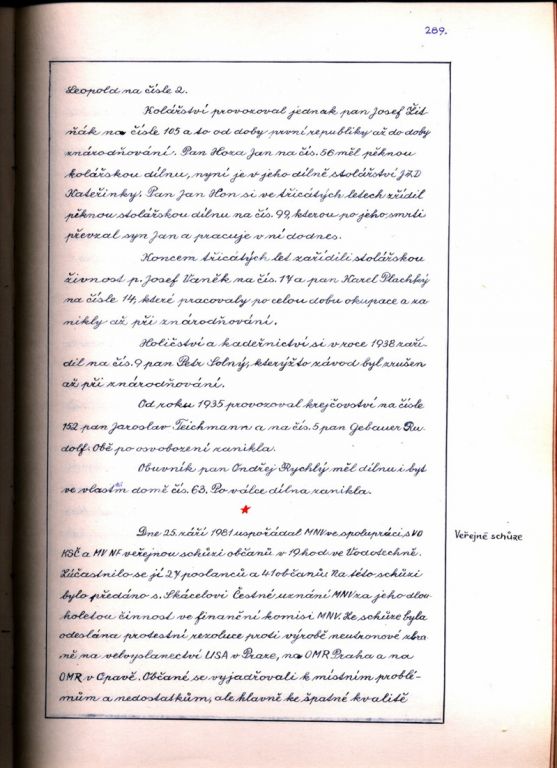 289.
Leopold na čísle 2.
Kolářství provozoval jednak pan Josef Žit-
ňák na čísle 105 a to od doby první republiky až do doby
znárodňování. Pan Hoza Jan na čís. 56 měl pěknou
kolářskou dílnu, nyní je v jeho dílně stolářství JZD
Kateřinky. Pan Jan Hon si ve třicátých letech zřídil
pěknou stolářskou dílnu na čís. 99, kterou po jeho smrti
převzal syn Jan a pracuje v ní dodnes.
Koncem třicátých let zařídili stolářskou
živnost p. Josef Vaněk na čís. 174 a pan Karel Plachký
na čísle 14, které pracovaly po celou dobu okupace a za
nikly až při znárodňování.
Holičství a kadeřnictví si v roce 1938 zaří-
dil na čís. 9 pan Petr Solný, kterýžto závod byl zrušen
až při znárodňování.
Od roku 1935 provozoval krejčovství na čísle
152 pan Jaroslav Teichmann a na čís. 5 pan Gebauer Ru-
dolf. Obě po osvobození zanikla.
Obuvník pan Ondřej Rychlý měl dílnu i byt
ve vlastním domě čís. 63. Po válce dílna zanikla.
Dne 25. září 1981 uspořádal MNV ve spolupráci s VO
KSČ a MV NF veřejnou schůzi občanů v 19 hod. ve Vodotechně.
Zúčastnilo se jí 27 poslanců a 41 občanů. Na této schůzi
bylo předáno s. Skácelovi Čestné uznání MNV za jeho dlou
holetou činnost ve finanční komisi MNV. Ze schůze byla
odeslána protestní rezoluce proti výrobě neutronové zbra
ně na velvyslanectví USA v Praze, na OMR Praha a na
OMR v Opavě. Občané se vyjadřovali k místním problé-
mům a nedostatkům, ale hlavně ke špatné kvalitě
Veřejné schůze